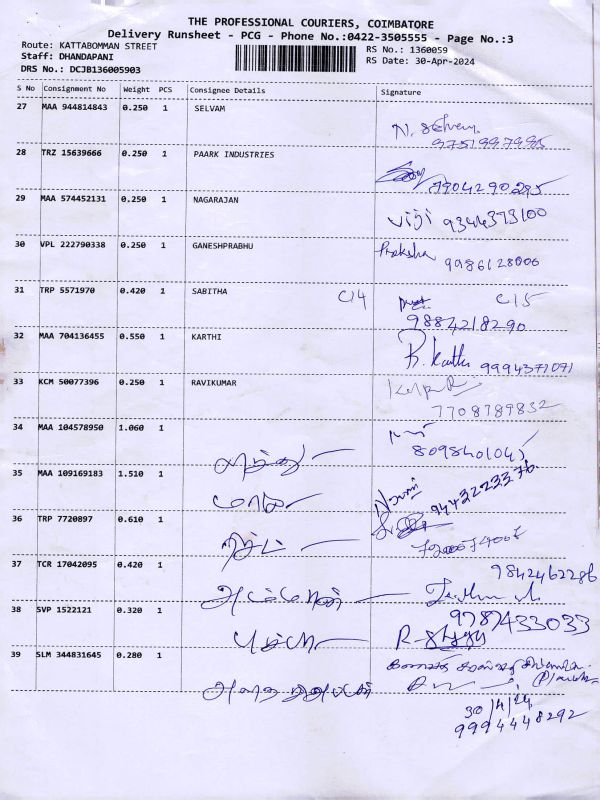 THE PROFESSIONAL COURIERS, COIMBATORE
Delivery Runsheet - PCG - Phone No.:0422-3505555 - Page No.:3
Route: KATTABOMMAN STREET
RS No.: 1360059
Staff: DHANDAPANI
RS Date: 30-Apr-2024
DRS No.: DCJB136005903
S No Consignment No Weight PCS Consignee Details Signature
27 MAA 944814843 0.250 1 SELVAM
N. Selvam
9751997995
28 TRZ 15639666 0.250 1 PAARK INDUSTRIES
7904290295
29 MAA 574452131 0.250 1 NAGARAJAN
Viji 9344373100
30 VPL 222790338 0.250 1 GANESHPRABHU
9986128006
31 TRP 5571970 0.420 1 SABITHA C14 C15
9884218290
32 MAA 704136455 0.550 1 KARTHI
R. Karthi 9994371071
33 KCM 50077396 0.250 1 RAVIKUMAR
7708789832
34 MAA 104578950 1.060 1
8098401045
35 MAA 109169183 1.510 1
9443223376
36 TRP 7720897 0.610 1
37 TCR 17042095 0.420 1
9842462286
38 SVP 1522121 0.320 1
9787433033
39 SLM 344831645 0.280 1
30/4/24
9994448292